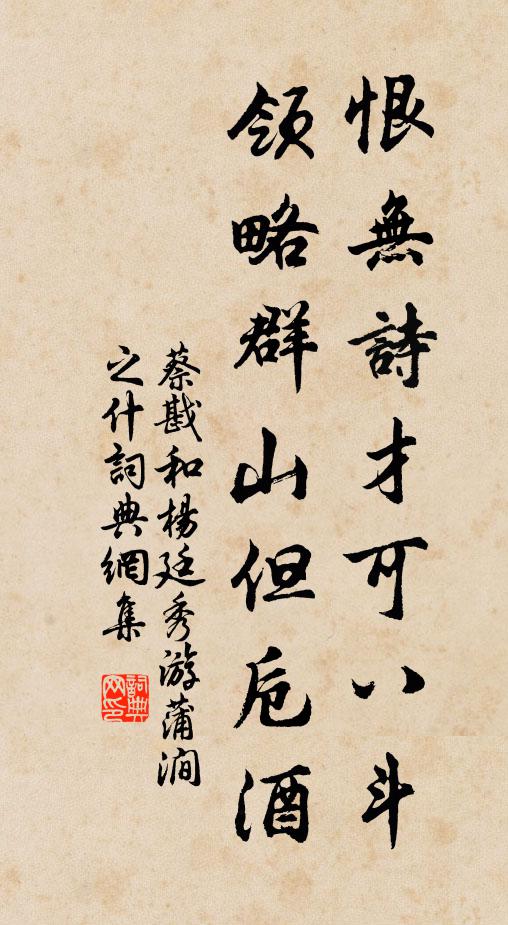 恨無詩才可八斗
領略群山但卮酒
蔡戡和楊廷秀游蒲澗
之什詞典網集
詞典網印